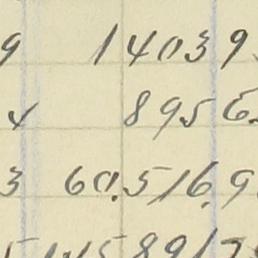 9 14039
4 8956.
3 60.516.9